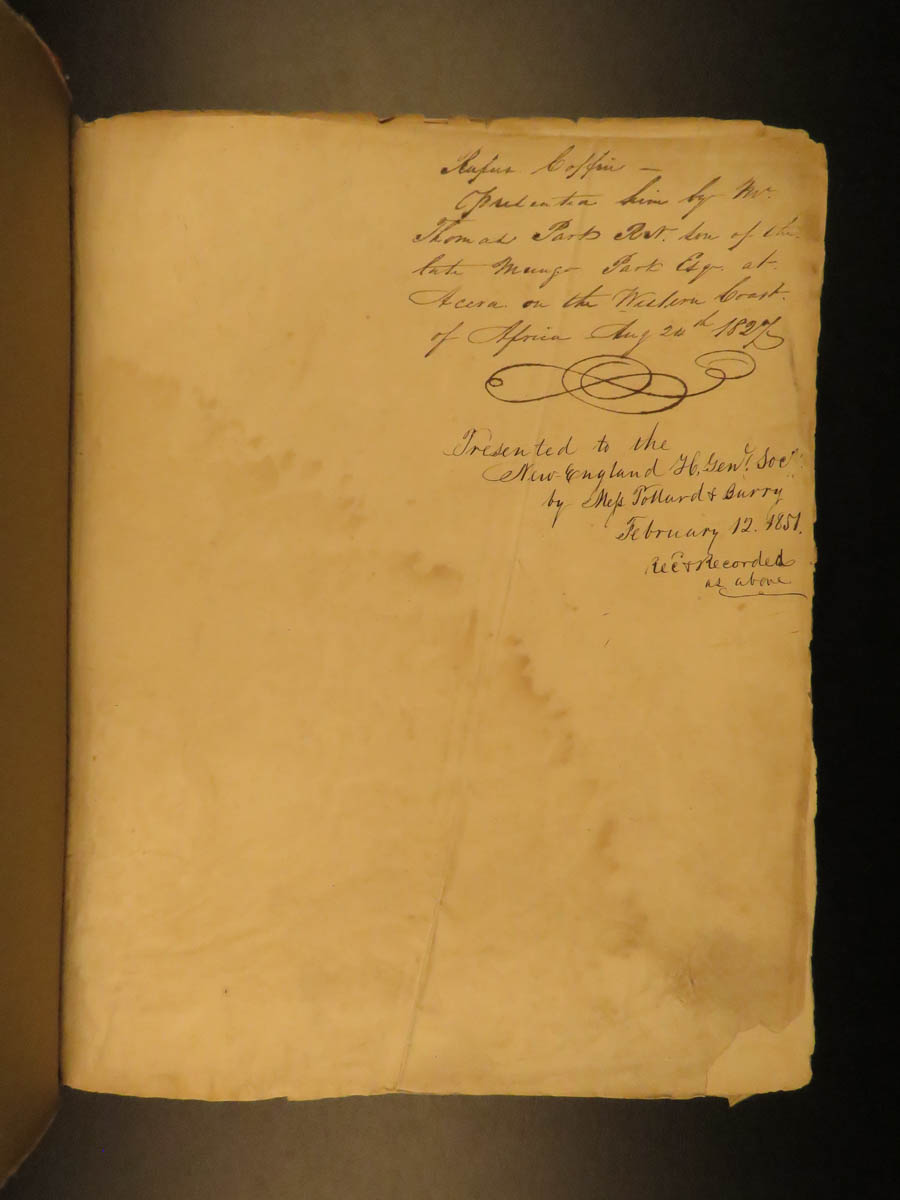 Rufus Coffin —
Presented him by Mr.
Thomas Park R.N. son of the
late Mungo Park Esqr. at
Accra on the Western Coast
of Africa Aug 20th 1827
Presented to the
New-England H. Genl. Socy.
by Mess Pollard & Barry
February 12. 1851.
Rec & Recorded
as above